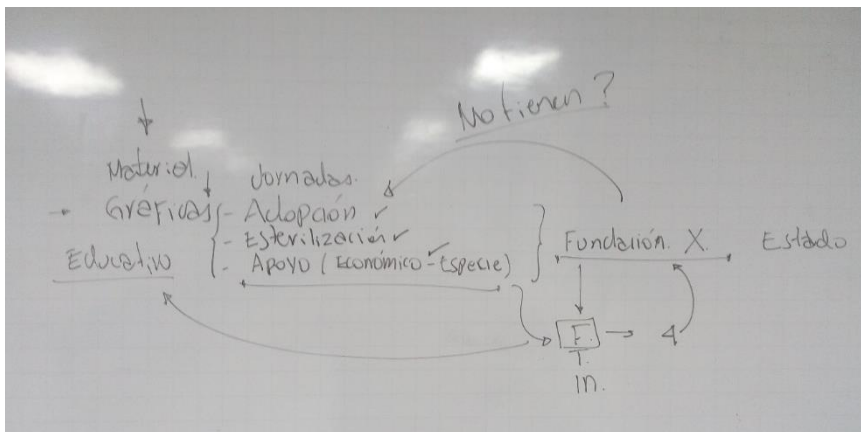 No tienen?
Material
Jornadas.
Gráficas - Adopción ✓
- Esterilización ✓
Educativo - Apoyo (Económico - Especie) ✓
Fundación X. Estado
F. → 4
T.
In.